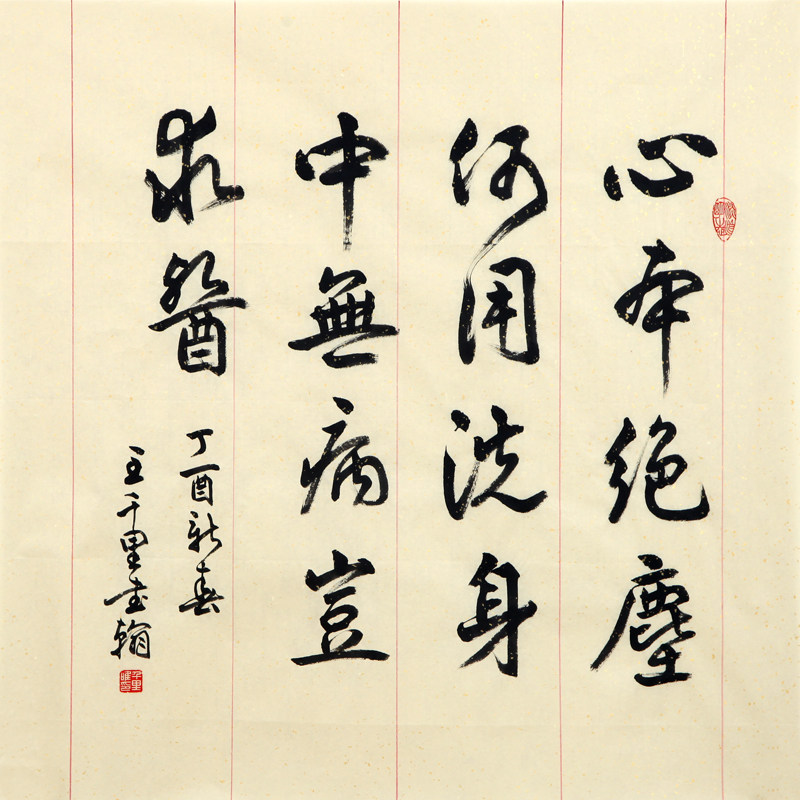 心本絕塵
何用洗身
中無病豈
求醫
丁酉新春
王千里書翰